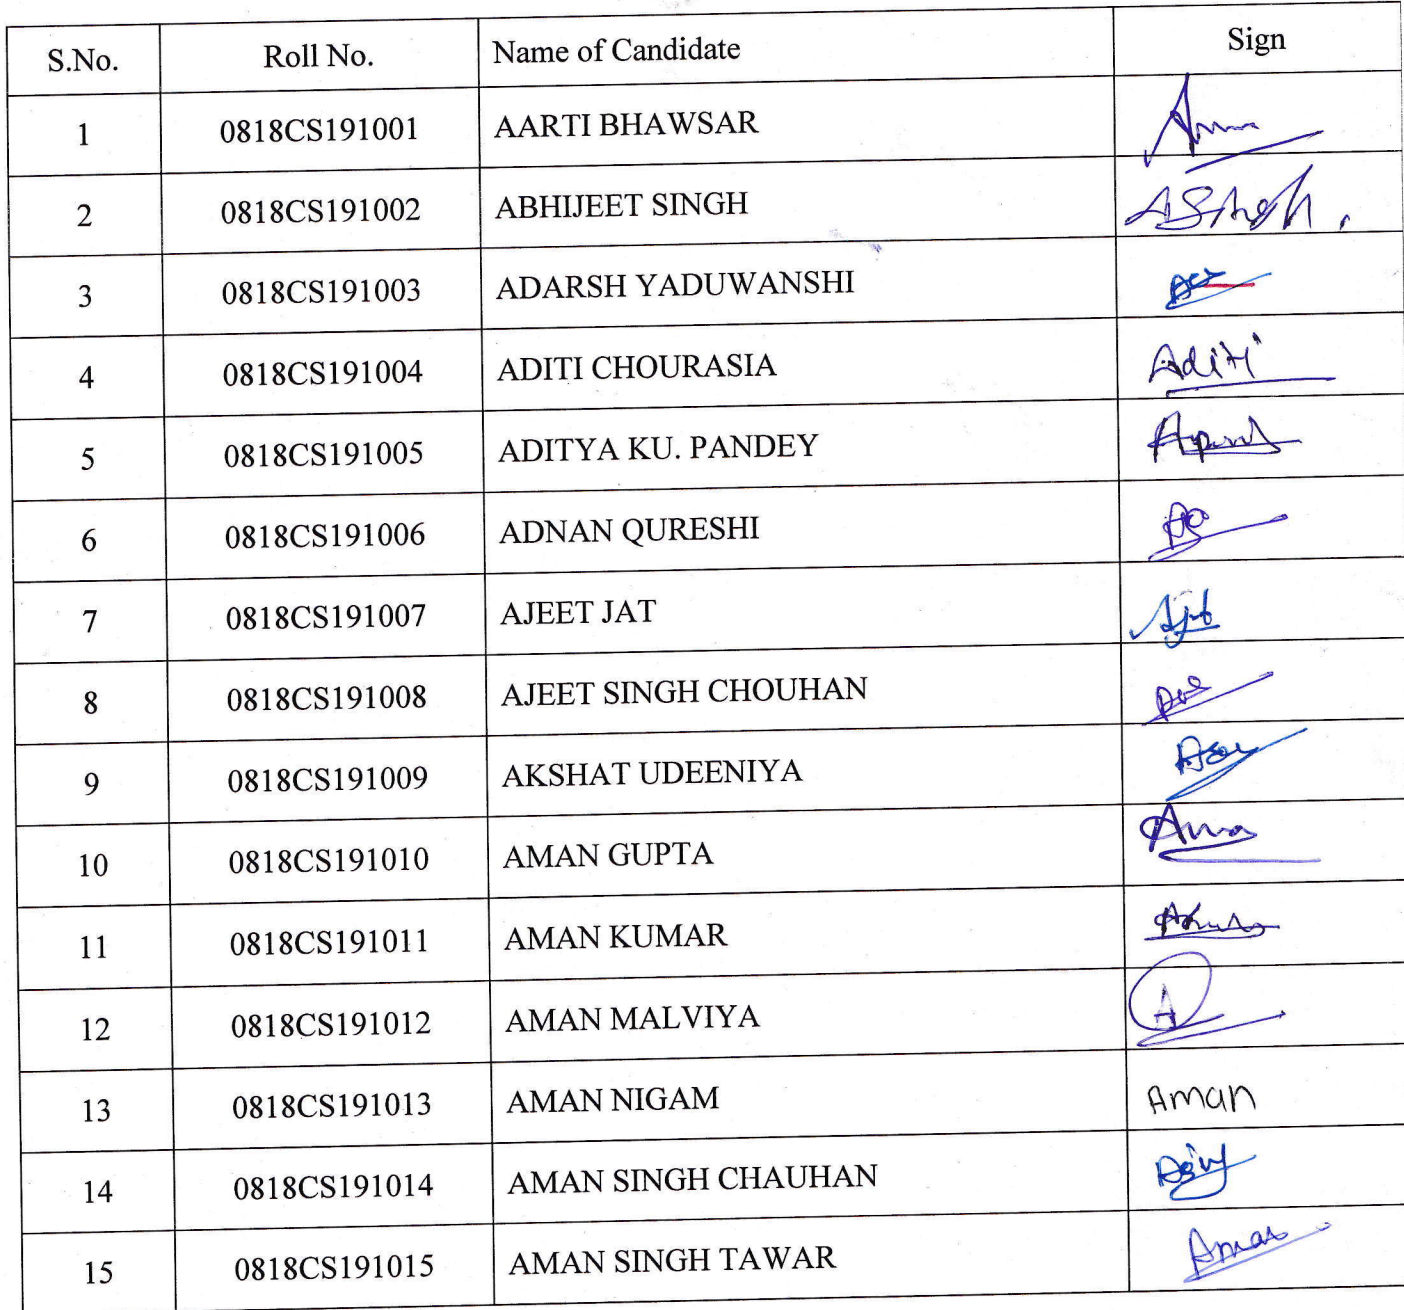 S.No. Roll No. Name of Candidate Sign
1 0818CS191001 AARTI BHAWSAR
2 0818CS191002 ABHIJEET SINGH ASingh.
3 0818CS191003 ADARSH YADUWANSHI
4 0818CS191004 ADITI CHOURASIA Aditi
5 0818CS191005 ADITYA KU. PANDEY
6 0818CS191006 ADNAN QURESHI
7 0818CS191007 AJEET JAT
8 0818CS191008 AJEET SINGH CHOUHAN
9 0818CS191009 AKSHAT UDEENIYA
10 0818CS191010 AMAN GUPTA
11 0818CS191011 AMAN KUMAR
12 0818CS191012 AMAN MALVIYA A
13 0818CS191013 AMAN NIGAM Aman
14 0818CS191014 AMAN SINGH CHAUHAN
15 0818CS191015 AMAN SINGH TAWAR